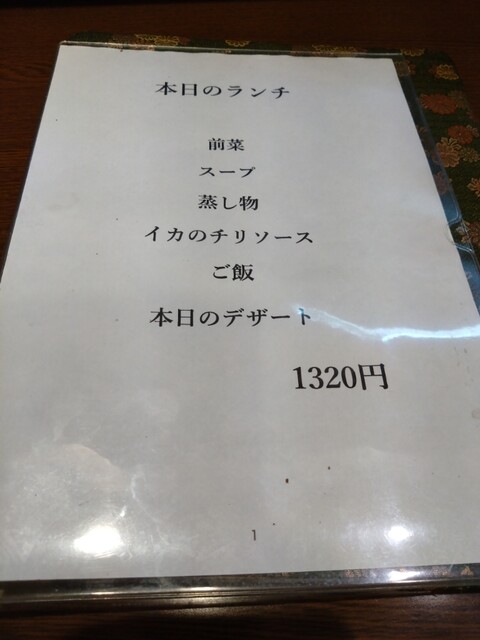 本日のランチ
前菜
スープ
蒸し物
イカのチリソース
ご飯
本日のデザート
1320円
1